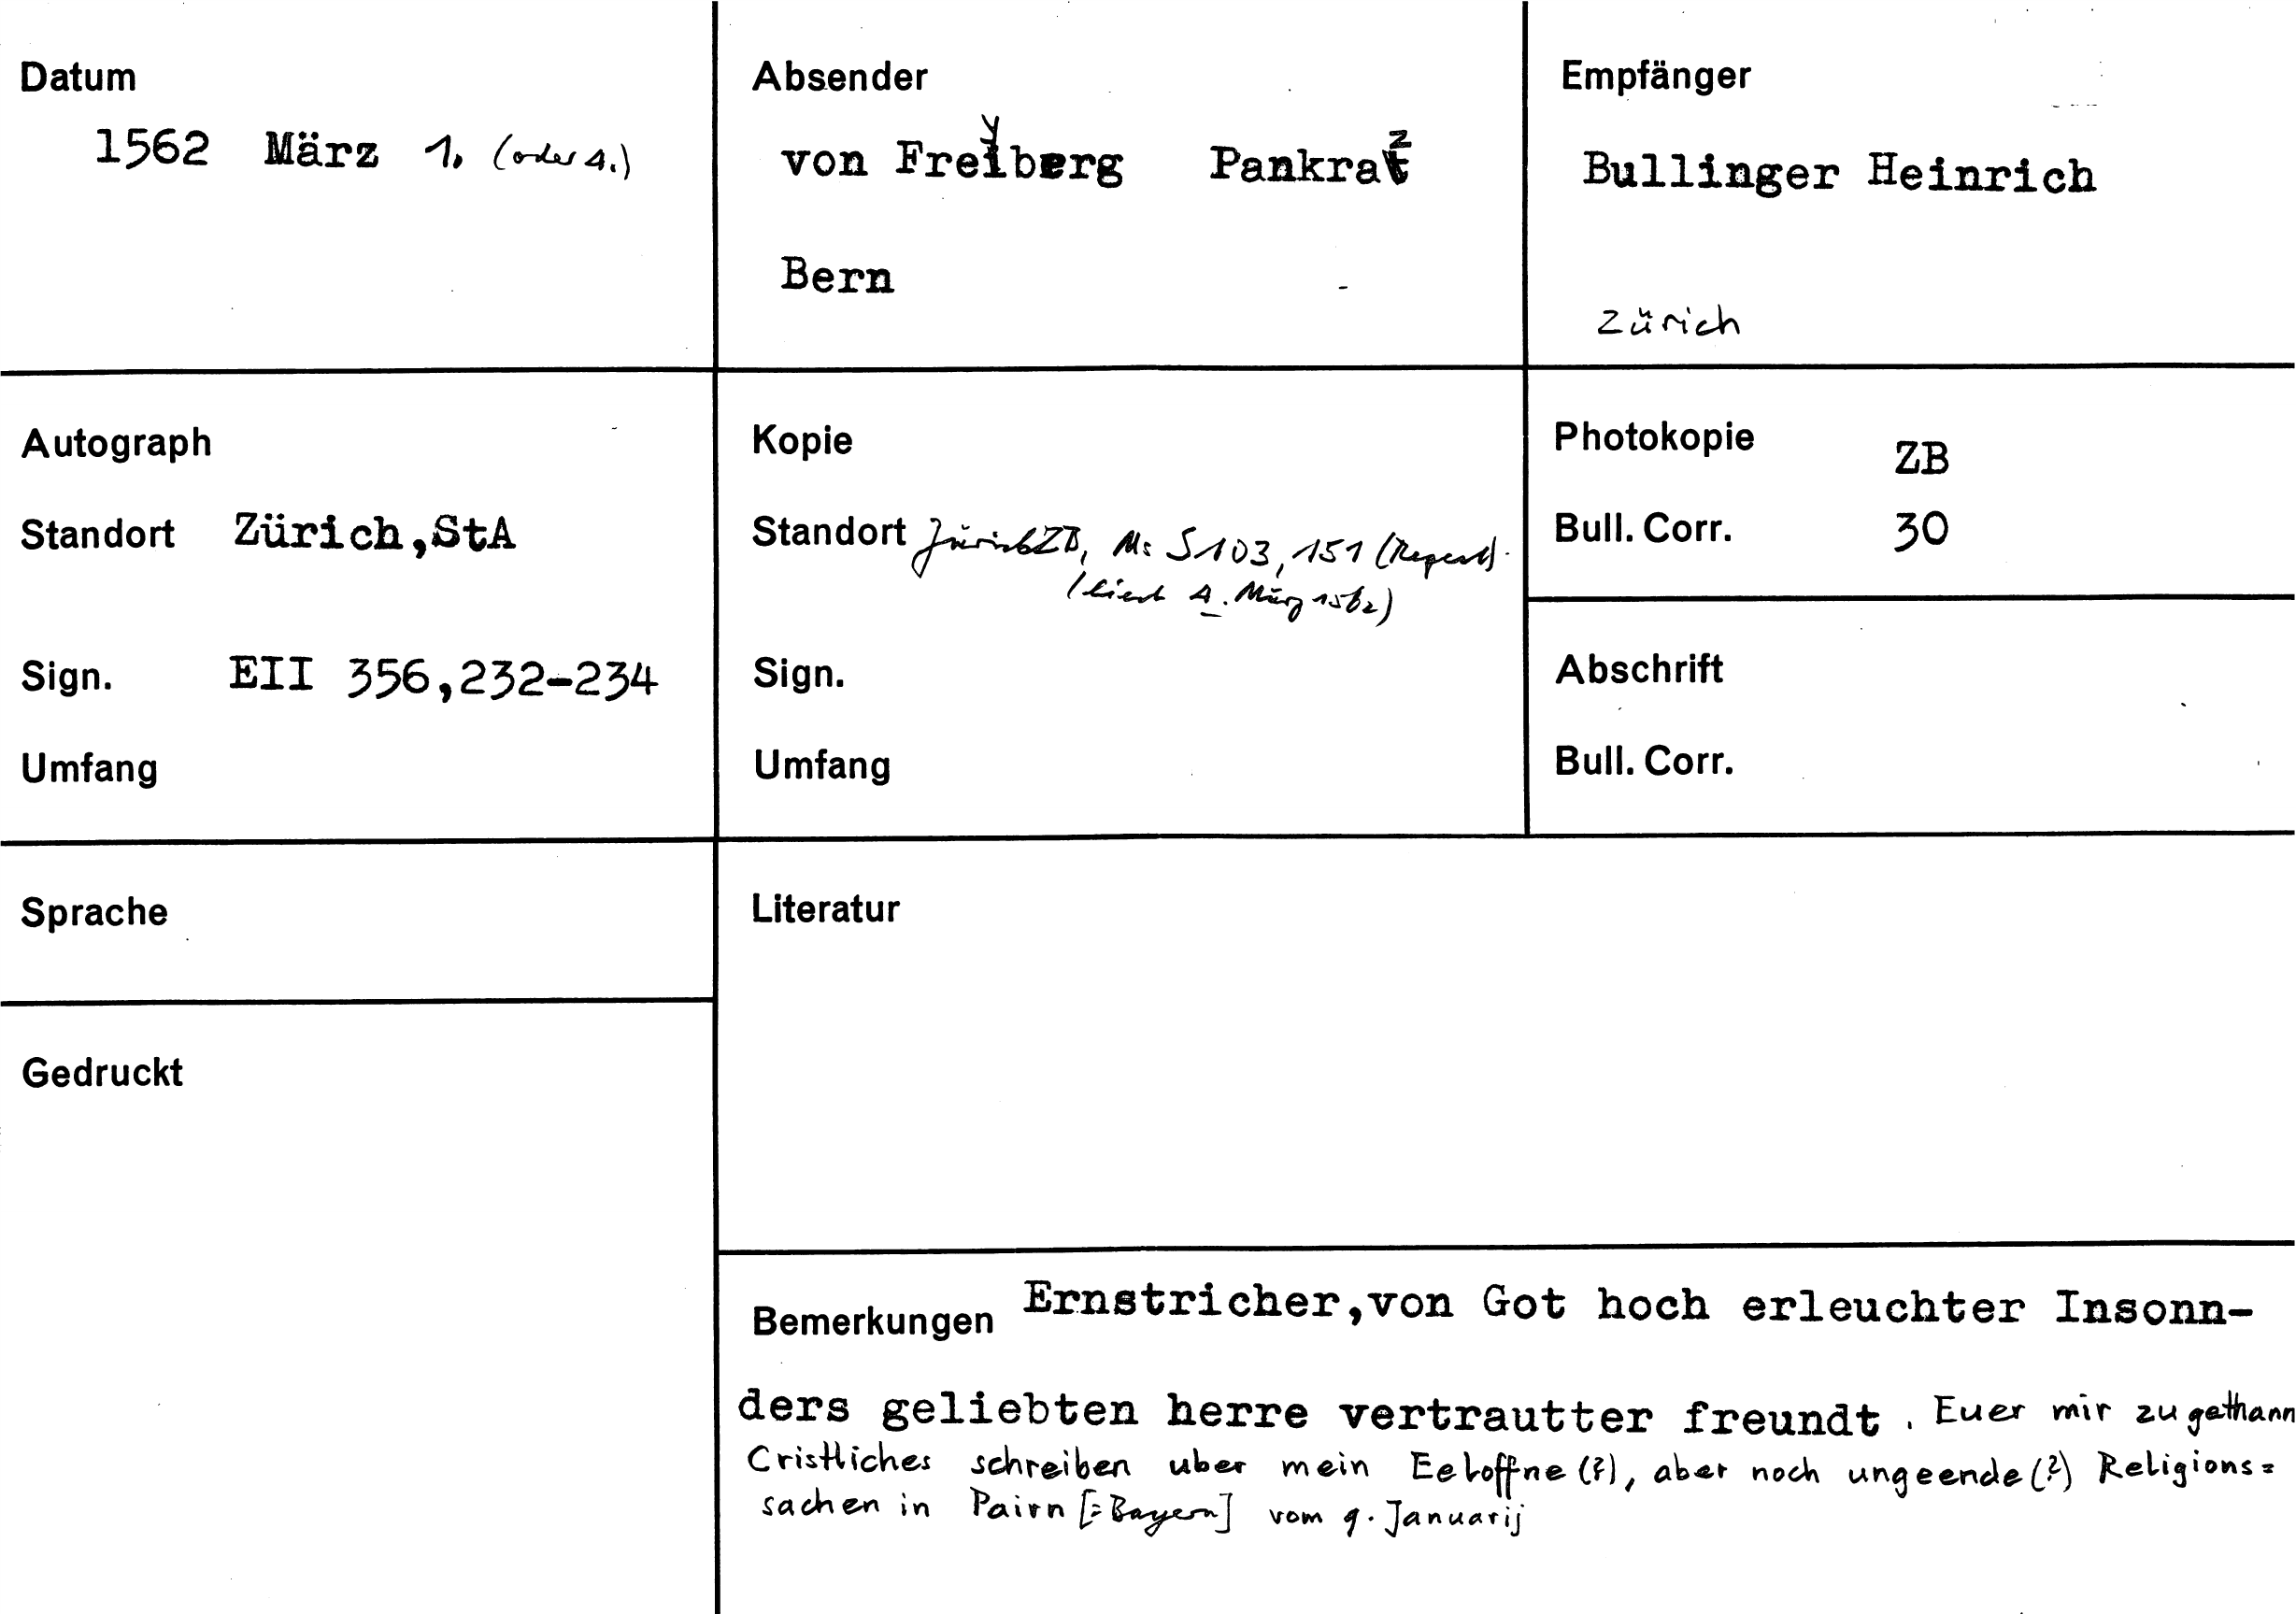 Datum
1562 März 1. (oder 4.)
Absender
von Freyberg Pankraz
Bern
Empfänger
Bullinger Heinrich
Zürich
Autograph
Standort Zürich,StA
Sign. EII 356,232-234
Umfang
Kopie
Standort Zürich ZB, Ms S 103, 151 (Regest).
(liest 4. März 1562)
Sign.
Umfang
Photokopie ZB
Bull. Corr. 30
Abschrift
Bull. Corr.
Sprache
Gedruckt
Literatur
Bemerkungen Ernstricher,von Got hoch erleuchter Insonn-
ders geliebten herre vertrautter freundt. Euer mir zugethann
Cristliches schreiben uber mein Eeloffne (?), aber noch ungeende (?) Religions=
sachen in Pairn [=Bayern] vom 9. Januarij